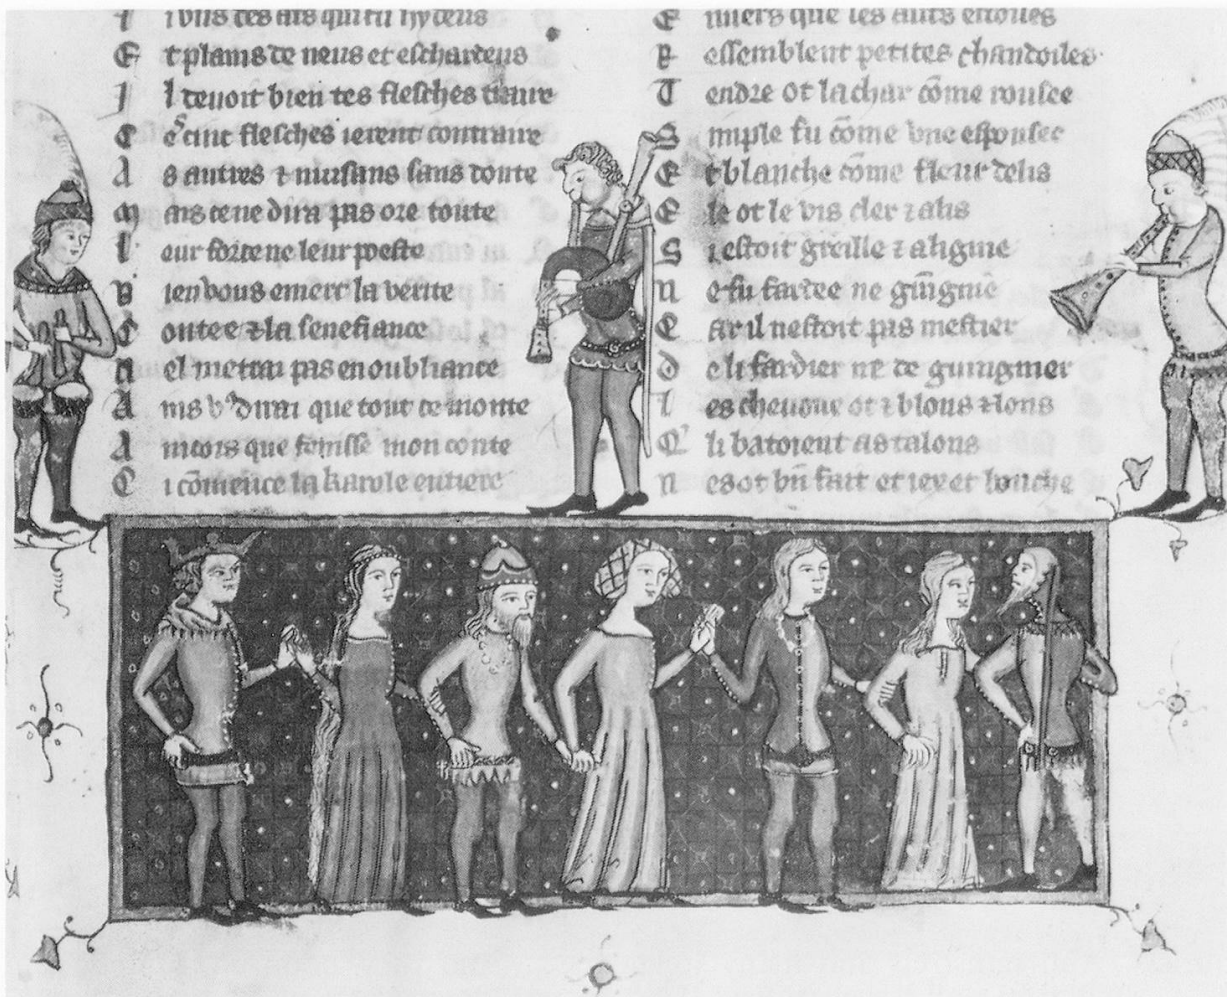 E t plains de neus et eschardeus
I l tenoit bien ces flesches
C es cinc flesches ierent contraire
A s autres et nuisans sans doute
M ais ce ne dirai pas ore toute
L eur force ne leur poeste
B ien vous en iert la verite
C ontee et la senefiance
N el metrai pas en oubliance
A ins vous dirai que tout ce monte
A incois que fenisse mon conte
C i cōmence la karole entiere
E nvers que les autres estoiles
R essemblent petites chandoiles
T endre ot la char cōme rousee
S imple fu cōme une espousee
E t blanche cōme fleur de lis
E le ot le vis cler et alis
S i estoit greille et alignie
N e fu fardee ne guignie
C ar il nestoit pas mestier
D e li fardier ne de guignier
L es cheveus ot et blons et lons
Q li batoient as talons
N es ot bn fait et iex et bouche